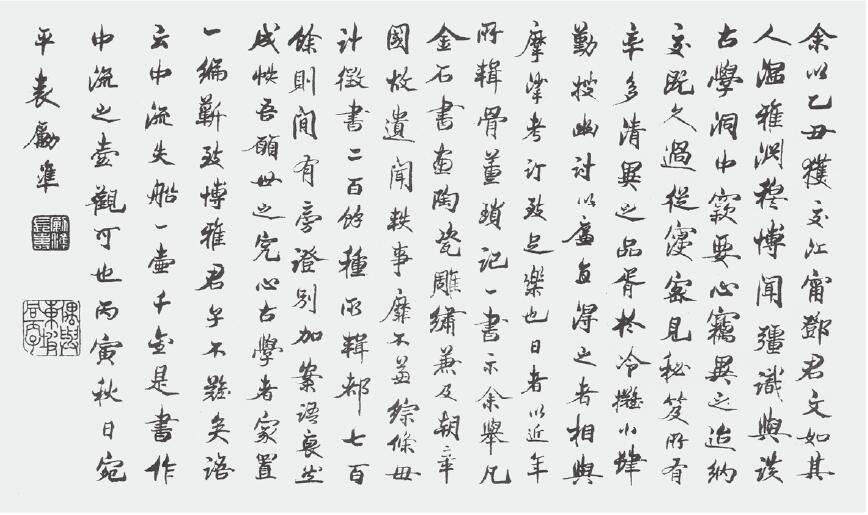 余以乙丑獲交江甯鄧君文如其
人溫雅淵穆博聞彊識與談
古學洞中窾要心竊異之迨納
交既久過從寖密見秘笈所有
率多清異之品胥於冷攤小肆
勤搜幽討以廉直得之者相與
摩挲考訂致足樂也日者以近年
所輯骨董瑣記一書示余舉凡
金石書畫陶瓷雕繡兼及朝章
國故遺聞軼事靡不薈綜條毌
計徵書二百餘種所輯都七百
餘則間有旁證別加案語裒然
成帙吾願世之究心古學者家置
一編蘄致博雅君子不難矣語
云中流失船一壺千金是書作
中流之壺觀可也丙寅秋日宛
平袁勵準